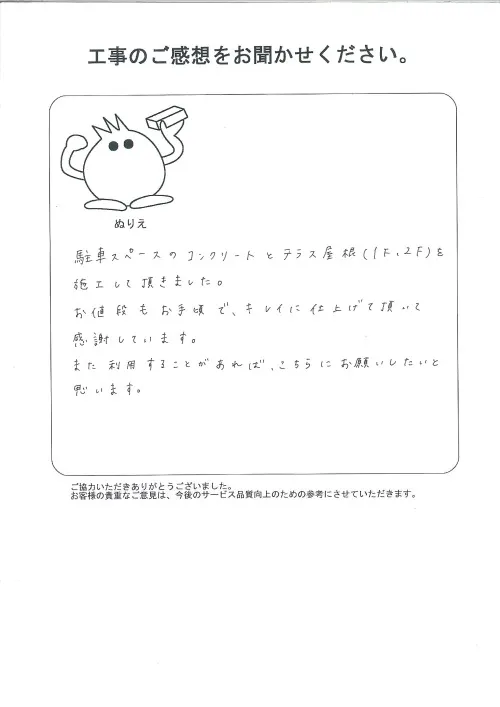 工事のご感想をお聞かせください。
ぬりえ
駐車スペースのコンクリートとテラス屋根(1F、2F)を
施工して頂きました。
お値段もお手頃で、キレイに仕上げて頂いて
感謝しています。
また利用することがあれば、こちらにお願いしたいと
思います。
ご協力いただきありがとうございました。
お客様の貴重なご意見は、今後のサービス品質向上のための参考にさせていただきます。